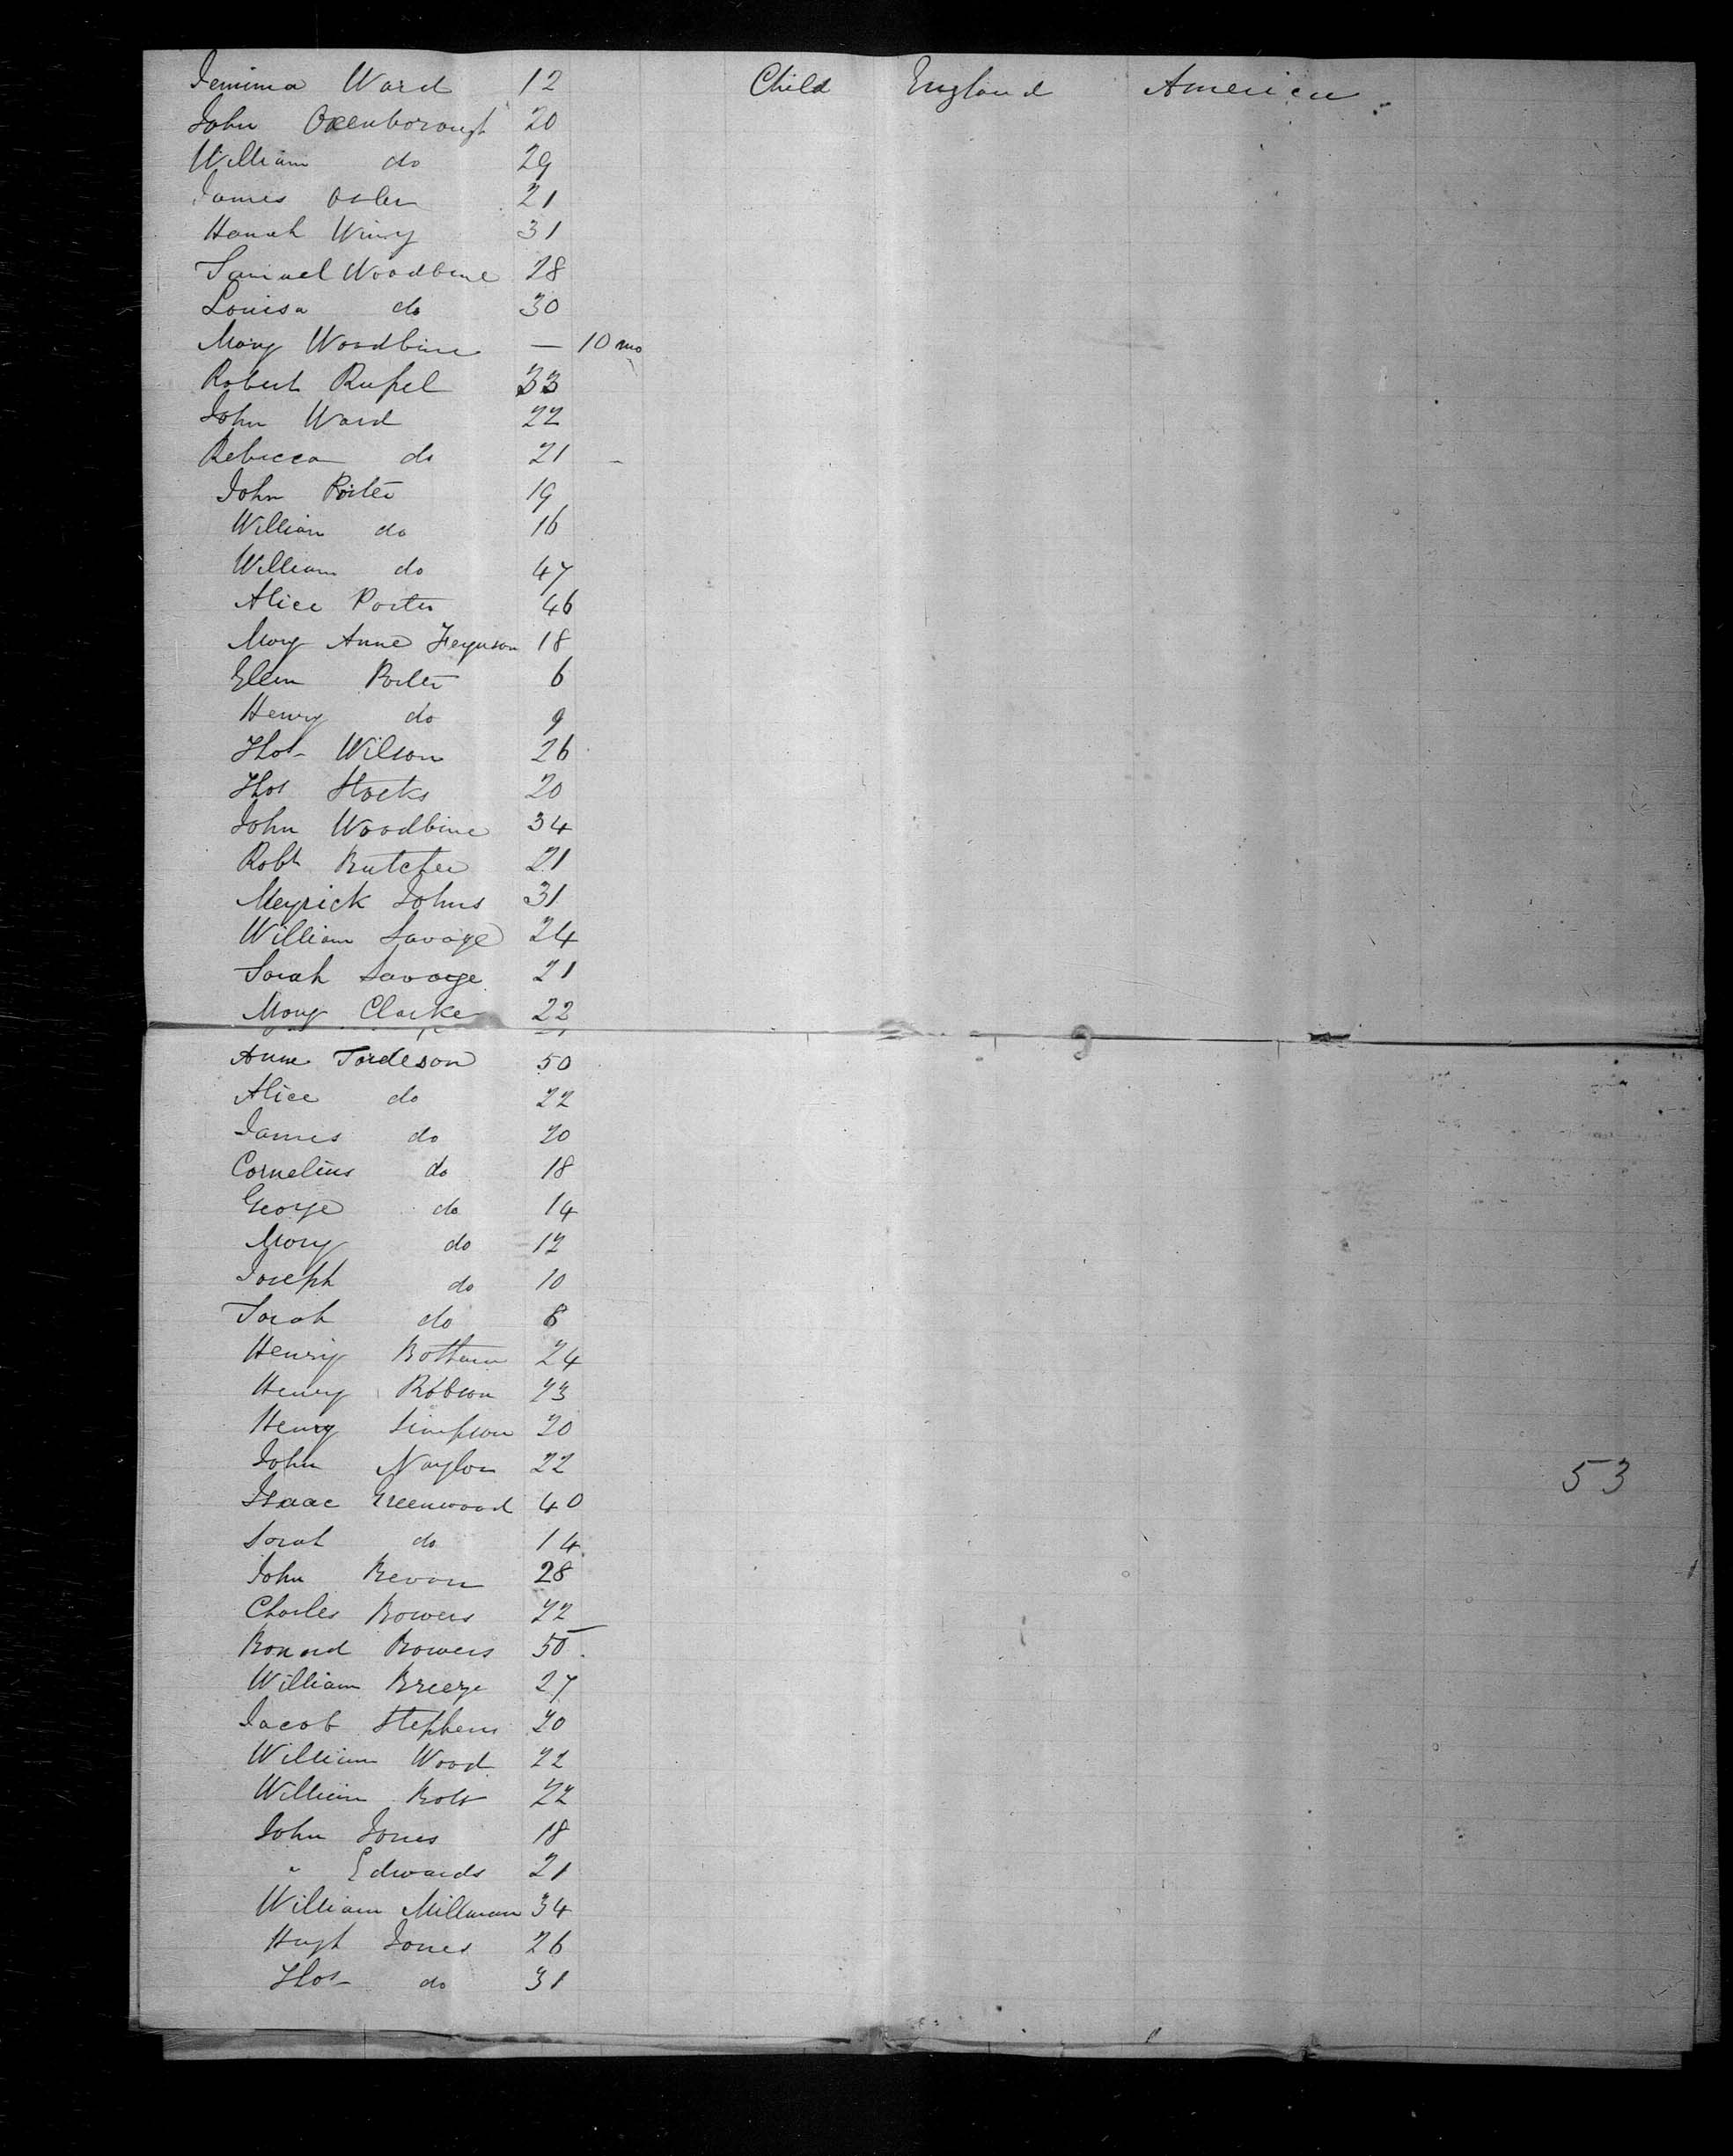 Jemima Ward 12 Child England America
John Oxenborough 20
William do 29
James Osler 21
Hanah 31
Samuel Woodbine 28
Louisa do 30
Mary Woodbine — 10 mo
Robert Rufsel 33
John Ward 22
Rebecca do 21
John Porter 19
William do 16
William do 47
Alice Porter 46
Mary Anne Ferguson 18
Ellen Porter 6
Henry do 9
Thos Wilson 26
Thos Stocks 20
John Woodbine 34
Robt Butcher 21
Meyrick Johns 31
William Savage 24
Sarah Savage 21
Mary Clarke 22
Anne Tordeson 50
Alice do 22
James do 20
Cornelius do 18
George do 14
Mary do 12
Joseph do 10
Sarah do 8
Henry Bottam 24
Henry Robson 23
Henry Simpson 20
John Naylor 22
53
Isaac Greenwood 40
Sarah do 14
John Bevan 28
Charles Bowers 22
Bowers 50
William Breeze 27
Jacob Stephens 20
William Wood 22
William Bolt 22
John Jones 18
" Edwards 21
William Millman 34
Hugh Jones 26
Thos do 31